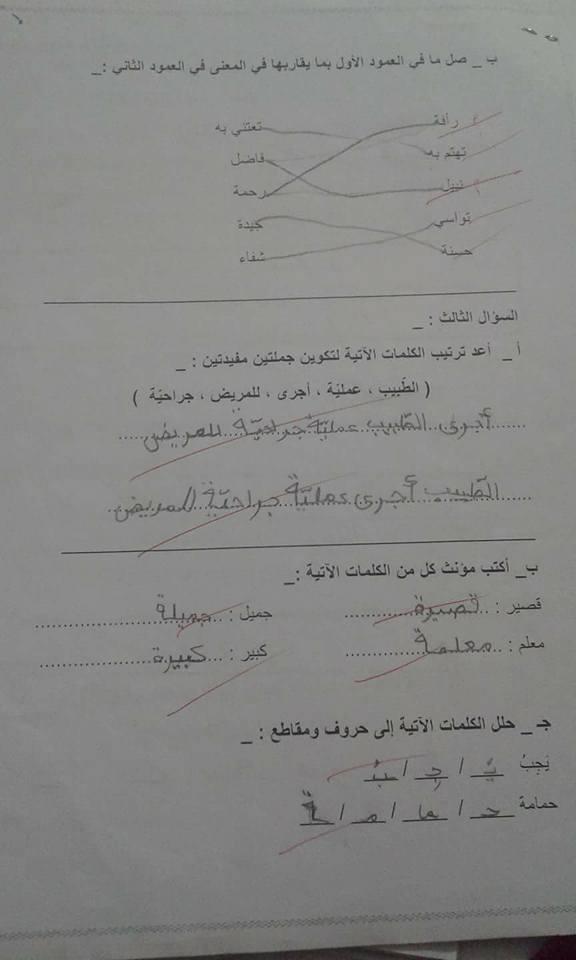 ب _ صل ما في العمود الأول بما يقاربها في المعنى في العمود الثاني :_
رأفة تعتني به
تهتم به فاضل
نبيل رحمة
تواسي جيدة
حسنة شفاء
السؤال الثالث : _
أ _ أعد ترتيب الكلمات الآتية لتكوين جملتين مفيدتين : _
( الطّبيب ، عمليّة ، أجرى ، للمريض ، جراحيّة )
أجرى الطّبيب عمليّة جراحيّة للمريض
الطّبيب أجرى عمليّة جراحيّة للمريض
ب_ أكتب مؤنث كل من الكلمات الآتية :_
قصير : قصيرة جميل : جميلة
معلم : معلمة كبير : كبيرة
جـ _ حلل الكلمات الآتية إلى حروف ومقاطع : _
يَجِبُ يَـ / جِـ / بُ
حمامة حـ / ما / مـ / ة